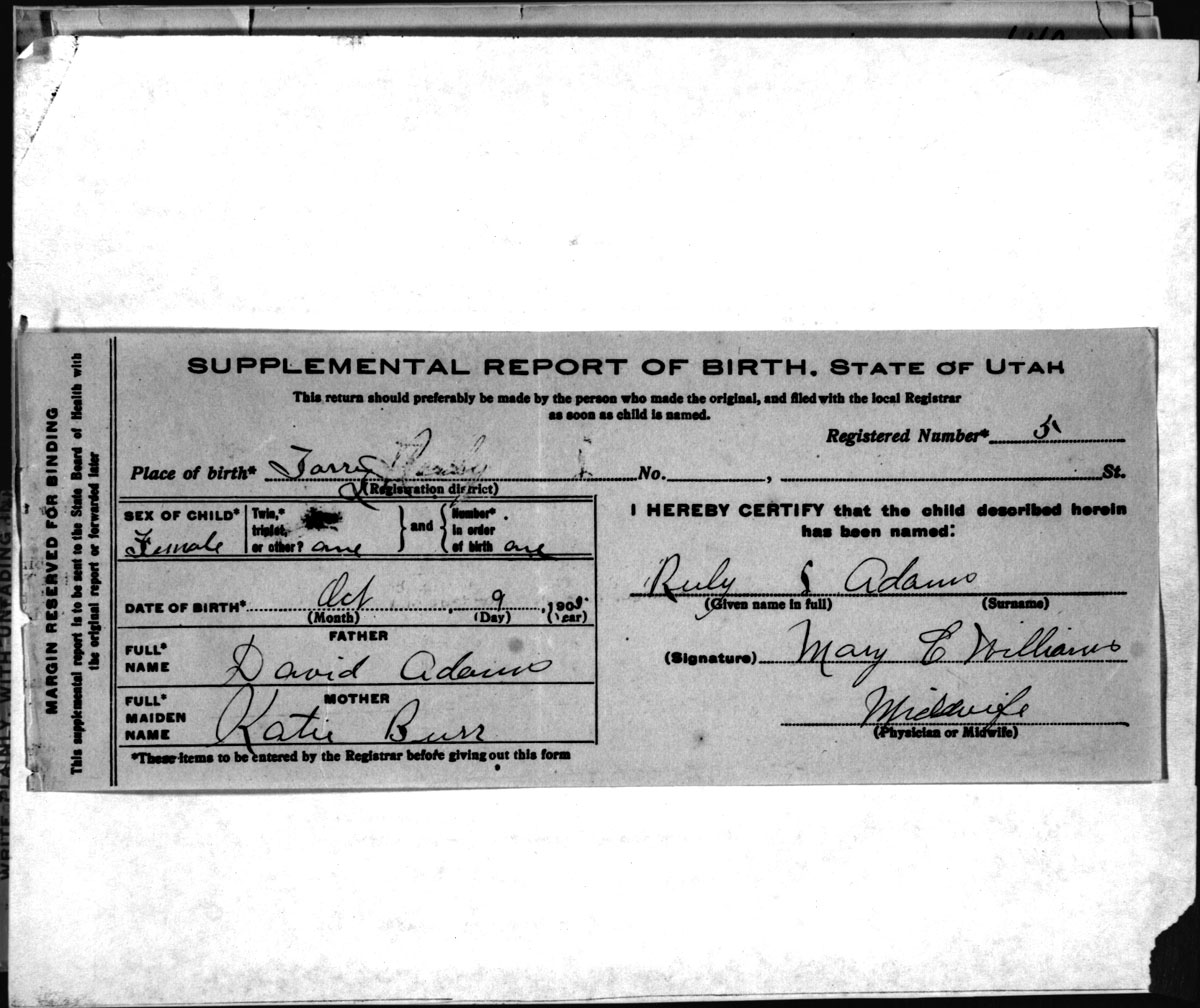 SUPPLEMENTAL REPORT OF BIRTH. STATE OF UTAH
This return should preferably be made by the person who made the original, and filed with the local Registrar
as soon as child is named.
Registered Number* 5
Place of birth* No. , St.
(Registration district)
SEX OF CHILD* Female
Twin,* triplet, or other? one
and
Number* in order of birth one
DATE OF BIRTH* Oct , 9 , 190
(Month) (Day) (Year)
FATHER
FULL* NAME David Adams
MOTHER
FULL* MAIDEN NAME Katie Burr
*These items to be entered by the Registrar before giving out this form
I HEREBY CERTIFY that the child described herein
has been named:
Ruby Adams
(Given name in full) (Surname)
(Signature) Mary E Williams
Midwife
(Physician or Midwife)
MARGIN RESERVED FOR BINDING
This supplemental report is to be sent to the State Board of Health with
the original report or forwarded later
WRITE PLAINLY, WITH UNFADING